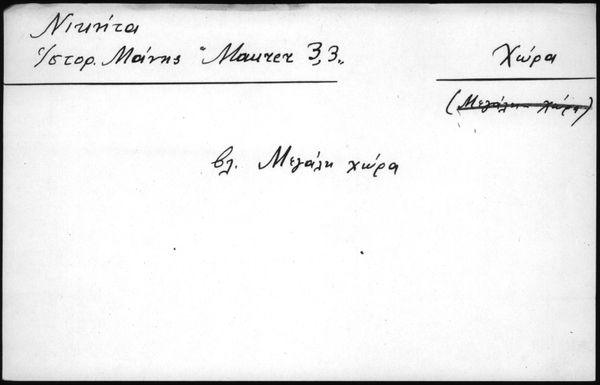 Νικήτα
Ἱστορ. Μάνης "Maurer 3,3„
Χώρα
(Μεγάλη χώρα)
βλ. Μεγάλη χώρα